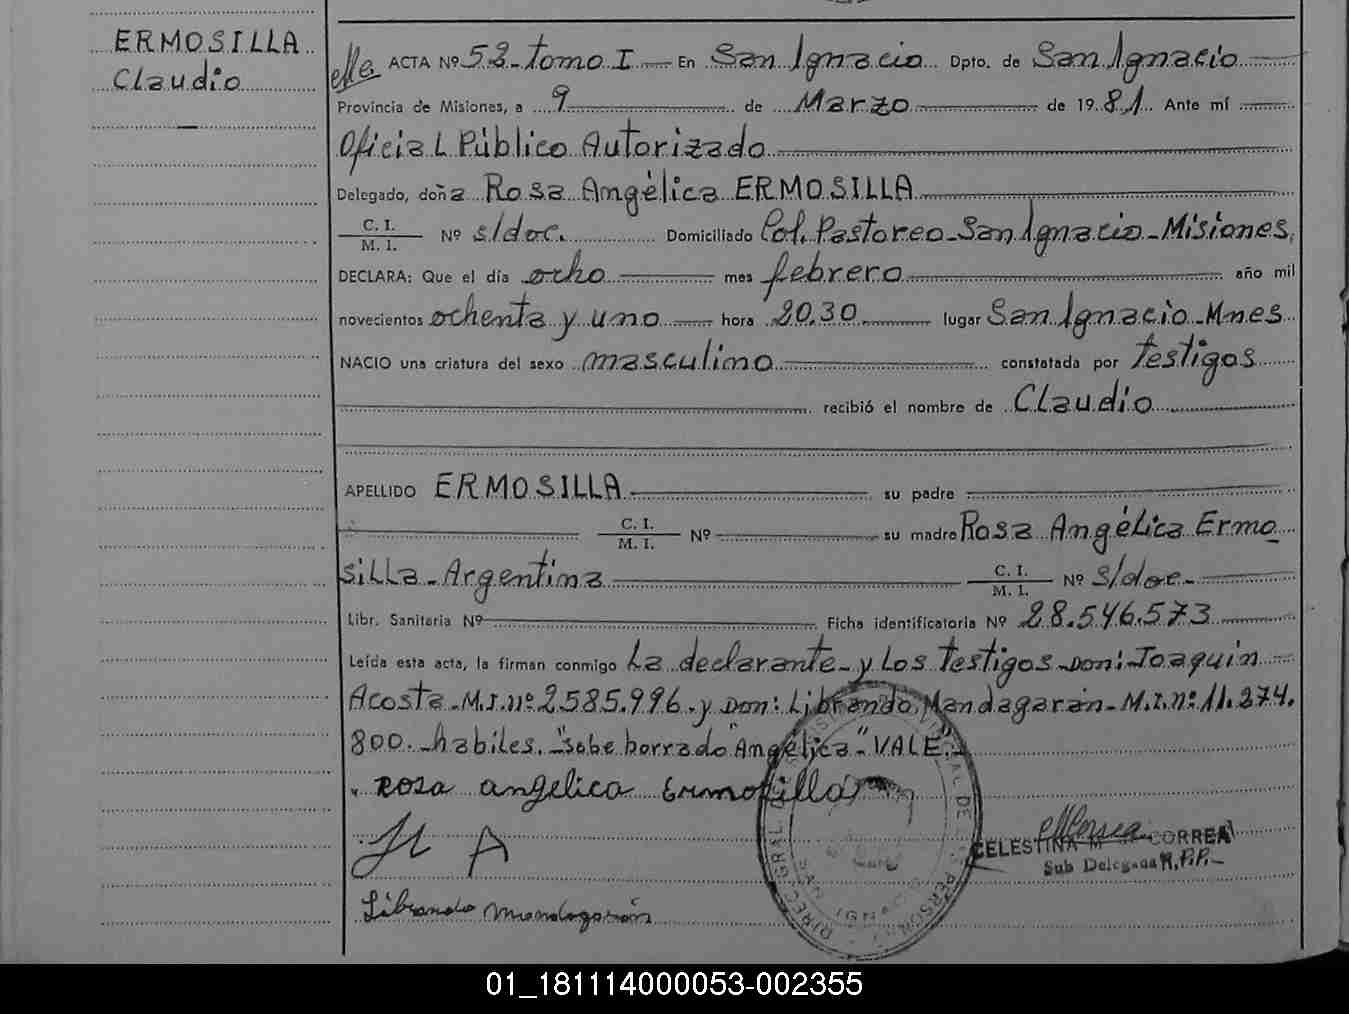 ERMOSILLA
Claudio
ACTA Nº 53 - tomo I En San Ignacio Dpto. de San Ignacio
Provincia de Misiones, a 9 de Marzo de 1981 Ante mí
Oficial Público Autorizado
Delegado, doña Rosa Angélica ERMOSILLA
C. I.
M. I. Nº s/doc. Domiciliado Col. Pastoreo - San Ignacio - Misiones
DECLARA: Que el día ocho mes febrero año mil
novecientos ochenta y uno hora 20.30 lugar San Ignacio - Mnes
NACIO una criatura del sexo masculino constatada por testigos
recibió el nombre de Claudio
APELLIDO ERMOSILLA su padre
C. I.
M. I. Nº su madre Rosa Angélica Ermo
silla - Argentina C. I.
M. I. Nº s/doc -
Libr. Sanitaria Nº Ficha identificatoria Nº 28.546.573
Leída esta acta, la firman conmigo La declarante - y Los Testigos - Don: Joaquin
Acosta - M.I. nº 2.585.996 - y Don: Librando Mandagarán - M.I. nº 11.274.
800 - habiles. - "sobe borrado "Angélica" - VALE". -
Rosa angelica Ermosilla
JL A
Librando Mandagarán
CELESTINA M CORREA
Sub Delegada R.P.P. -
SAN IGNACIO
01_181114000053-002355